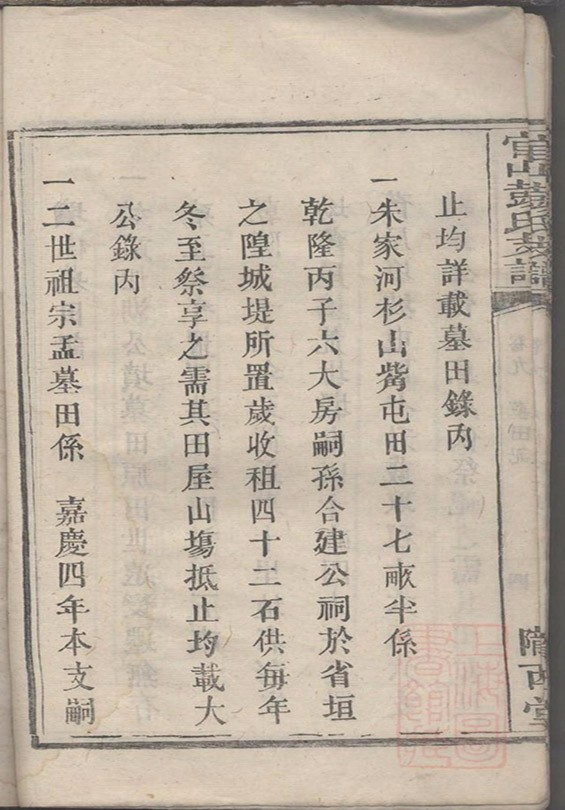 甯山彭氏支譜
隴西堂
止均詳載墓田錄內
一朱家河杉山觜屯田二十七畝半係
乾隆丙子六大房嗣孫合建公祠於省垣
之隍城堤所置歲收租四十二石供每年
冬至祭享之需其田屋山塲抵止均載大
公錄內
一二世祖宗孟墓田係　嘉慶四年本支嗣